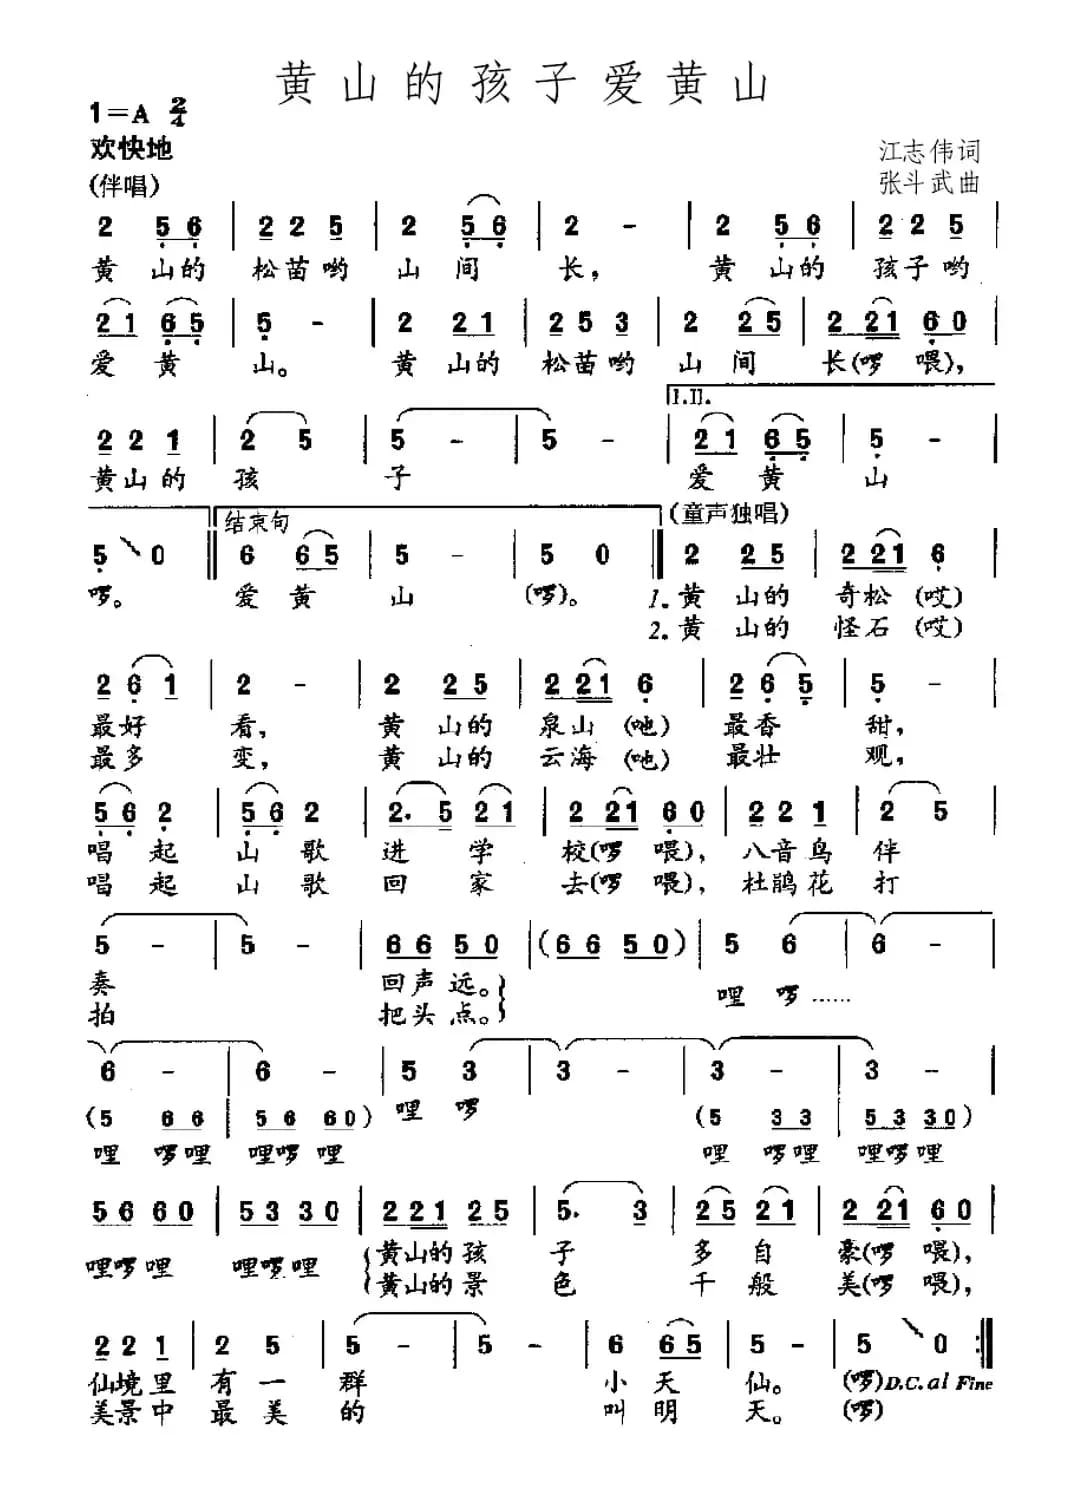 黄山的孩子爱黄山
1=A 2/4
欢快地
江志伟词
(伴唱)
张斗武曲
2 5 6 | 2 2 5 | 2 5 6 | 2 - | 2 5 6 | 2 2 5 |
黄 山的 松苗哟 山 间 长, 黄 山的 孩子哟
2 1 6 5 | 5 - | 2 2 1 | 2 5 3 | 2 2 5 | 2 2 1 6 0 |
爱 黄 山。 黄 山的 松苗哟 山 间 长(啰 喂),
I.II.
2 2 1 | 2 5 | 5 - | 5 - | 2 1 6 5 | 5 - |
黄山的 孩 子 爱 黄 山
结束句 (童声独唱)
5 0 || 6 6 5 | 5 - | 5 0 || 2 2 5 | 2 2 1 6 |
啰。 爱 黄 山 (啰)。 1.黄 山的 奇松 (哎)
2.黄 山的 怪石 (哎)
2 6 1 | 2 - | 2 2 5 | 2 2 1 6 | 2 6 5 | 5 - |
最好 看, 黄 山的 泉山 (吔) 最香 甜,
最多 变, 黄 山的 云海 (吔) 最壮 观,
5 6 2 | 5 6 2 | 2. 5 2 1 | 2 2 1 6 0 | 2 2 1 | 2 5 |
唱 起 山 歌 进 学 校(啰 喂), 八音鸟 伴
唱 起 山 歌 回 家 去(啰 喂), 杜鹃花 打
5 - | 5 - | 6 6 5 0 | (6 6 5 0) | 5 6 | 6 - |
奏 回声远。 哩 啰……
拍 把头点。
6 - | 6 - | 5 3 | 3 - | 3 - | 3 - |
(5 6 6 | 5 6 6 0) 哩 啰 (5 3 3 | 5 3 3 0)
哩 啰哩 哩啰哩 哩 啰哩 哩啰哩
5 6 6 0 | 5 3 3 0 | 2 2 1 2 5 | 5. 3 | 2 5 2 1 | 2 2 1 6 0 |
哩啰哩 哩啰哩 黄山的孩 子 多 自 豪(啰 喂),
黄山的景 色 千 般 美(啰 喂),
2 2 1 | 2 5 | 5 - | 5 - | 6 6 5 | 5 - | 5 0 :||
仙境里 有一 群 小 天 仙。 (啰) D.C.al Fine
美景中 最美 的 叫 明 天。 (啰)